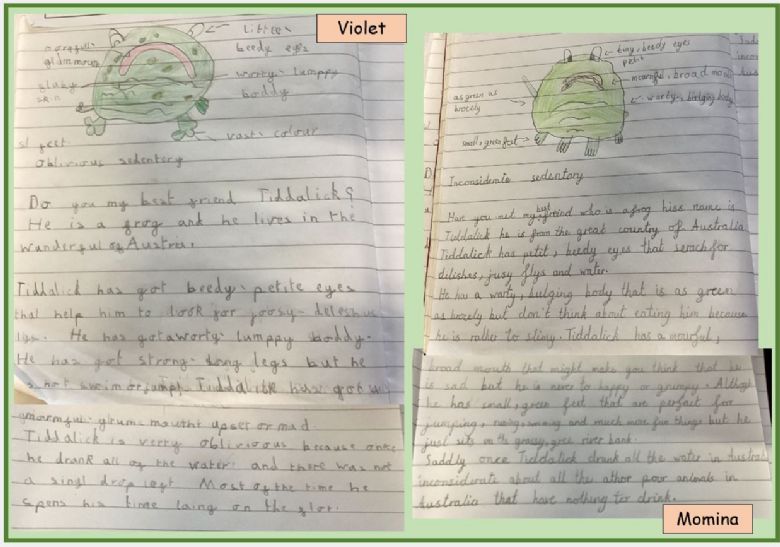 Violet
little
beedy eyes
glummouth
worty lumppy
boddy
vast colour
feet
oblivious sedentery
Do you my best friend Tiddalick?
He is a frog and he lives in the
wunderful of Austria.
Tiddalick has got beedy petite eyes
that help him to look for joosy deleshus
He has got a worty lumppy boddy.
He has got strong long legs but he
not swim or jump. Tiddalick has got a
glum mouth upset or mad.
Tiddalick is very oblivious because once
he drank all of the water and there was not
a singl drop left Most of the time he
spens his time laing on the
tiny, beedy eyes
petit
mournful, broad mouth
as green as
warty, bulging body
small, green feet
Inconsiderate sedentory
Have you met my best freind who is a frog hiss name is
Tiddalick he is from the great country of Australia
Tiddalick has petit, beedy eyes that serach for
delishes, jusy flys and water.
He has a warty, bulging body that is as green
as but don't think about eating him because
he is rather to slimy. Tiddalick has a mourful,
broad mouth that might make you think that he
is sad but he is never to happy or grumpy. Althogh
he has small, green feet that are perfect for
jumping, and much more fun things but he
just sits on the grassy, river bank.
Saddly once Tiddalick drank all the water in Austral
inconsidirate about all the athor poor animals in
Australia that have nothing ter drink.
Momina